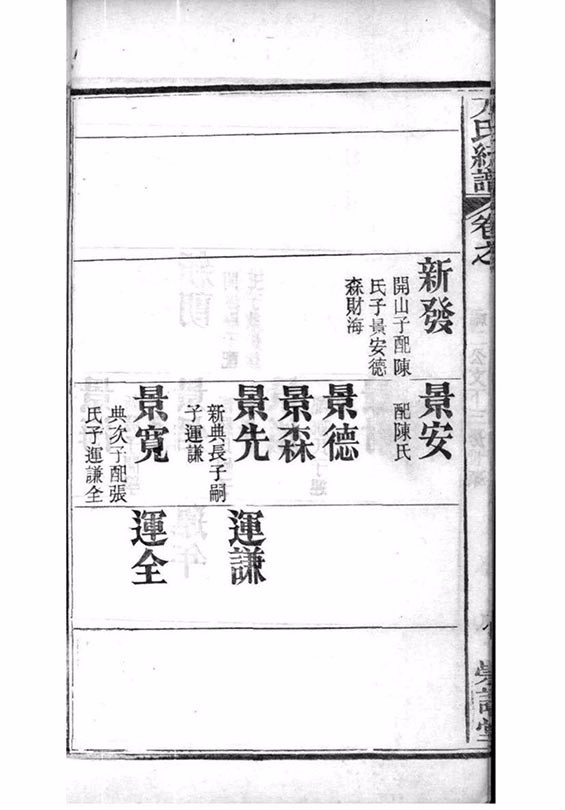 氏統譜
卷之
新發
開山子配陳
氏子景安德
森財海
景安
配陳氏
景德
景森
景先
新典長子嗣
子運謙
景寬
典次子配張
氏子運謙全
運謙
運全